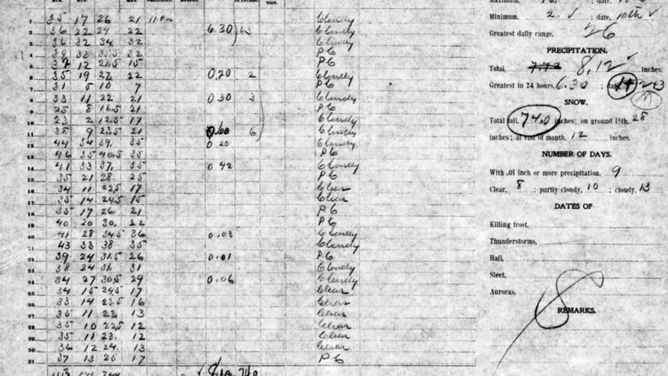 35 17 26 21 Cloudy
36 22 29 22 6.30 Cloudy
36 32 34 32 Cloudy
38 33 35.5 32 PC
37 12 24.5 15 PC
35 19 27 22 0.70 2 Cloudy
31 5 10 7 PC
33 11 22 21 0.30 3 Cloudy
25 8 16.5 21 PC
23 2 12.5 17 Cloudy
35 9 23.5 21 0.60 6 Cloudy
44 34 39. 35 0.20 Cloudy
46 35 40.5 33 PC
41 33 37. 35 0.42 Cloudy
35 21 28 25 PC
34 11 22.5 17 Clear
35 14 24.5 15 Clear
35 17 26 21 PC
40 20 30. 22 PC
41 28 34.5 36 0.03 Cloudy
43 33 38 35 Cloudy
39 24 31.5 26 0.01 PC
38 24 31. 31 Cloudy
34 27 30.5 29 0.06 Cloudy
34 15 24.5 17 Clear
33 14 23.5 16 Clear
35 11 23 13 Clear
35 10 22.5 12 Clear
35 11 23. 12 Clear
36 12 24. 13 Clear
37 13 25 17 PC
Minimum, 2 ; date, 10th
Greatest daily range, 26
PRECIPITATION.
Total, 8.12 inches.
Greatest in 24 hours, 6.30 ; date,
SNOW.
Total fall, 74.0 inches; on ground 15th, 28
inches; at end of month, 12 inches.
NUMBER OF DAYS.
With .01 inch or more precipitation, 9
Clear, 8 ; partly cloudy, 10 ; cloudy, 13
DATES OF
Killing frost,
Thunderstorms,
Hail,
Sleet,
Auroras,
REMARKS.